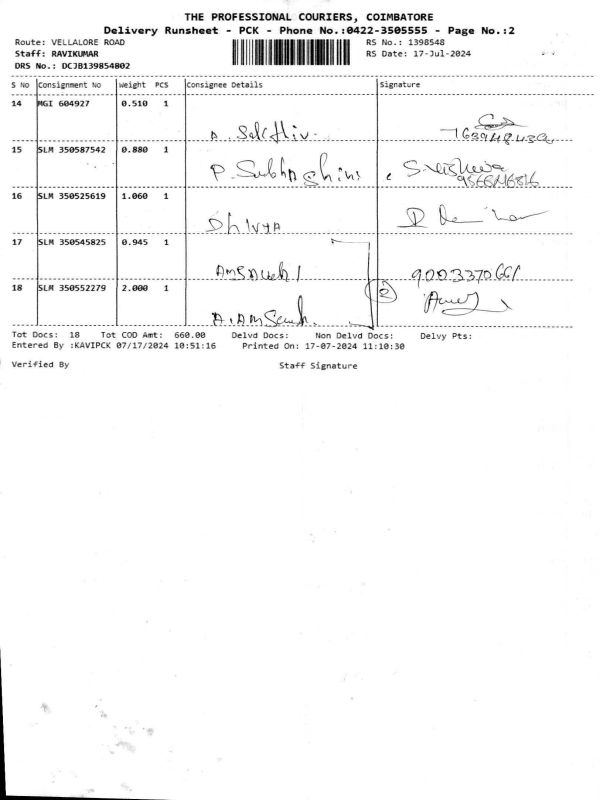 THE PROFESSIONAL COURIERS, COIMBATORE
Delivery Runsheet - PCK - Phone No.:0422-3505555 - Page No.:2
Route: VELLALORE ROAD RS No.: 1398548
Staff: RAVIKUMAR RS Date: 17-Jul-2024
DRS No.: DCJB139854802
S No Consignment No Weight PCS Consignee Details Signature
14 MGI 604927 0.510 1
A. Sakthiv.
15 SLM 350587542 0.880 1
P. Subhashini
16 SLM 350525619 1.060 1
Dhivya
17 SLM 350545825 0.945 1
9003370661
18 SLM 350552279 2.000 1 2
Tot Docs: 18 Tot COD Amt: 660.00 Delvd Docs: Non Delvd Docs: Delvy Pts:
Entered By :KAVIPCK 07/17/2024 10:51:16 Printed On: 17-07-2024 11:10:30
Verified By Staff Signature